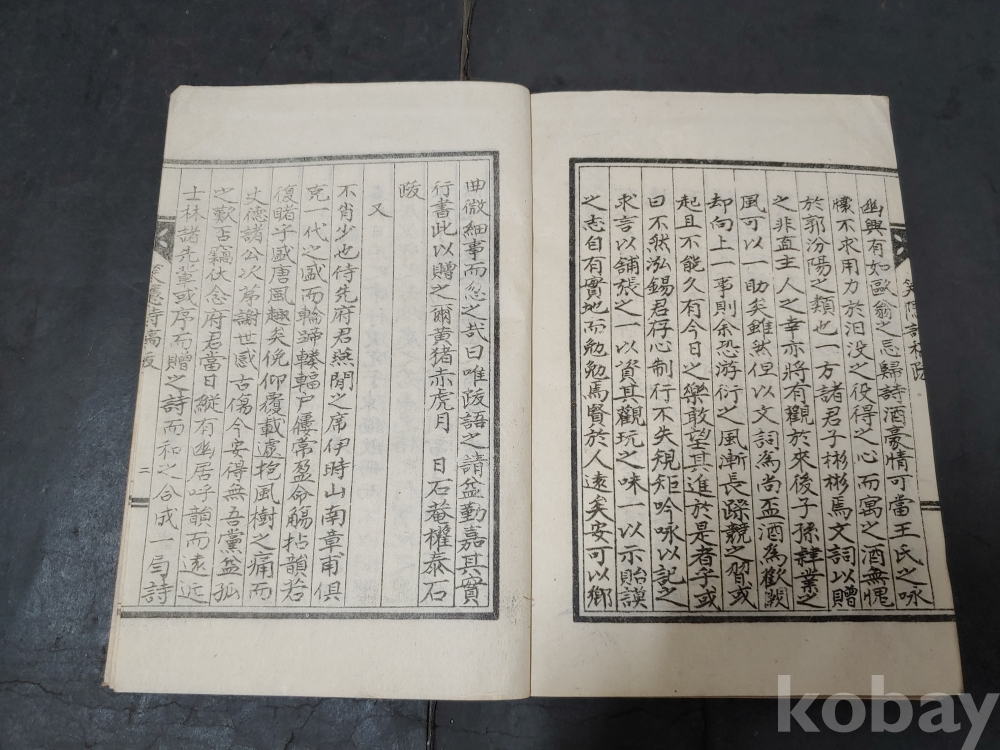 幽興有如歐翁之忘歸詩酒豪情可當王氏之咏
懷不求用力於汨没之役得之心而寓之酒無愧
於郭汾陽之類也一方諸君子彬彬焉文詞以贈
之非直主人之幸亦將有觀於來後子孫肄業之
風可以一助矣雖然但以文詞為尚盃酒為歡戲
却向上一事則余恐游衍之風漸長躁競之習或
起且不能久有今日之樂敢望其進於是者乎或
曰不然泓錫君存心制行不失規矩吟咏以記之
求言以舖張之一以資其觀玩之味一以示貽謨
之志自有實地而勉勉焉賢於人遠矣安可以鄉
曲微細事而忽之哉曰唯跋語之請益勤嘉其實
行書此以贈之爾黃猪赤虎月 日石菴權泰石
跋
又
不肖少也侍先府君燕閒之席伊時山南章甫俱
克一代之盛而輪蹄轃輻戶屨常盈命觴拈韻若
復睹乎盛唐風趣矣俛仰覆載遽抱風樹之痛而
丈德諸公次第謝世感古傷今安得無吾黨益孤
之歎否竊伏念府君當日縱有幽居呼韻而遠近
士林諸先輩或序而贈之詩而和之合成一局詩
二
kobay